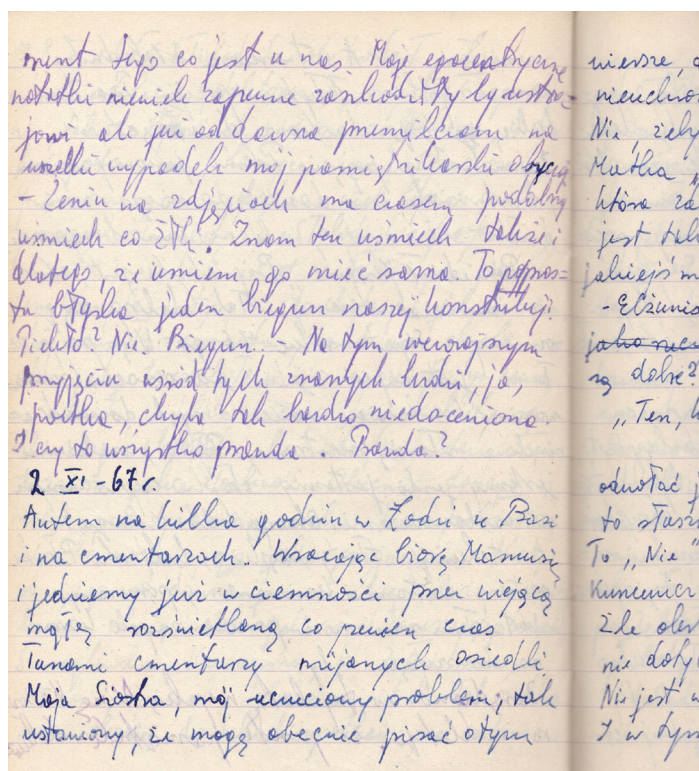 ment tego co jest u nas. Moje egocentryczne
notatki nieniek zapewne zaszkodziłyby ustro-
jowi ale już od dawna przemilczam na
wszelki wypadek mój pamiętnikarski obyczaj
- Lenin na zdjęciach ma czasem podobny
uśmiech co . Znam ten uśmiech także i
dlatego, że umiem go mieć sama. To po pros-
tu błyska jeden biegun naszej konstrukcji.
Piekło? Nie. Biegun. - Na tym wczorajszym
przyjęciu wśród tych znanych ludzi, ja,
poetka, chyba tak bardzo niedoceniona.
I czy to wszystko prawda. Prawda?
2 XI - 67 r.
Autem na kilka godzin w Łodzi u Basi
i na cmentarzach. Wracając biorę Mamusię
i jedziemy już w ciemności przez wiejącą
mgłę rozświetlaną co pewien czas
łunami cmentarzy mijanych osiedli
Moja Siostra, mój uczuciowy problem, tak
ustawiony, że mogę obecnie pisać o tym
wiersze,
Nie, żeby
Matka
która
jest
jakiejś
- Elżunia
są dobre?
"Ten,
odwołać
to
To "Nie"
Kuncewicz
źle
nie
Nie jest
I w tym